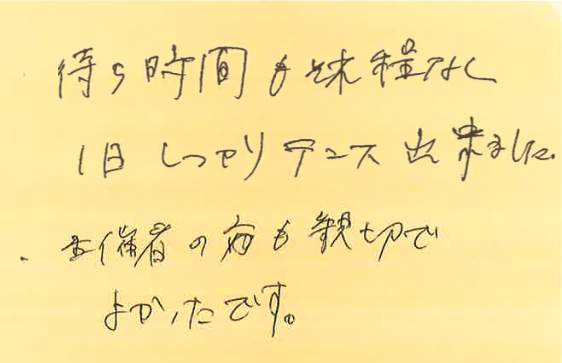 待ち時間もそれ程なく
1日しっかりテニス出来ました。
主催者の方も親切で
よかったです。